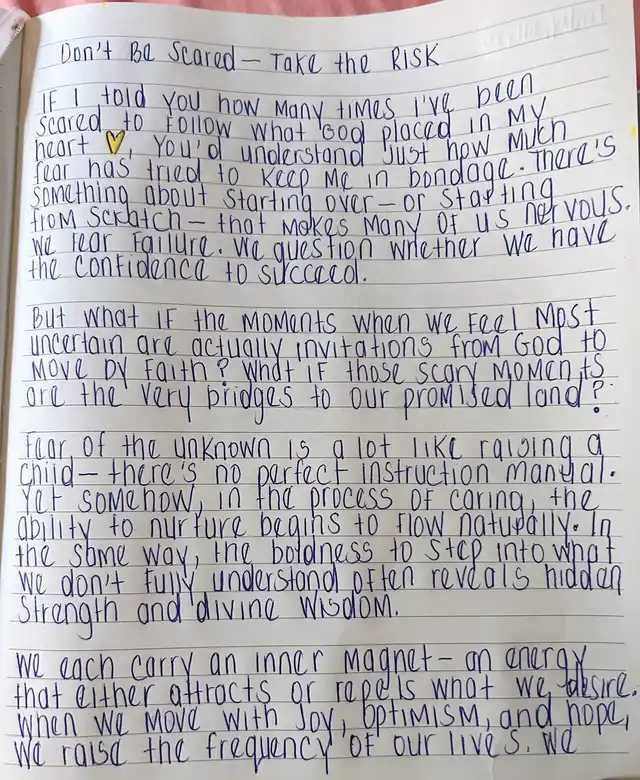 Don't Be Scared – Take the RISK
If I told you how many times I've been
scared to follow what God placed in my
heart 💛, you'd understand just how much
fear has tried to keep me in bondage. There's
something about starting over – or starting
from scratch – that makes many of us nervous.
We fear failure. We question whether we have
the confidence to succeed.
But what if the moments when we feel most
uncertain are actually invitations from God to
move by faith? What if those scary moments
are the very bridges to our promised land?
Fear of the unknown is a lot like raising a
child – there's no perfect instruction manual.
Yet somehow, in the process of caring, the
ability to nurture begins to flow naturally. In
the same way, the boldness to step into what
we don't fully understand often reveals hidden
strength and divine wisdom.
We each carry an inner magnet – an energy
that either attracts or repels what we desire.
When we move with joy, optimism, and hope,
we raise the frequency of our lives. We